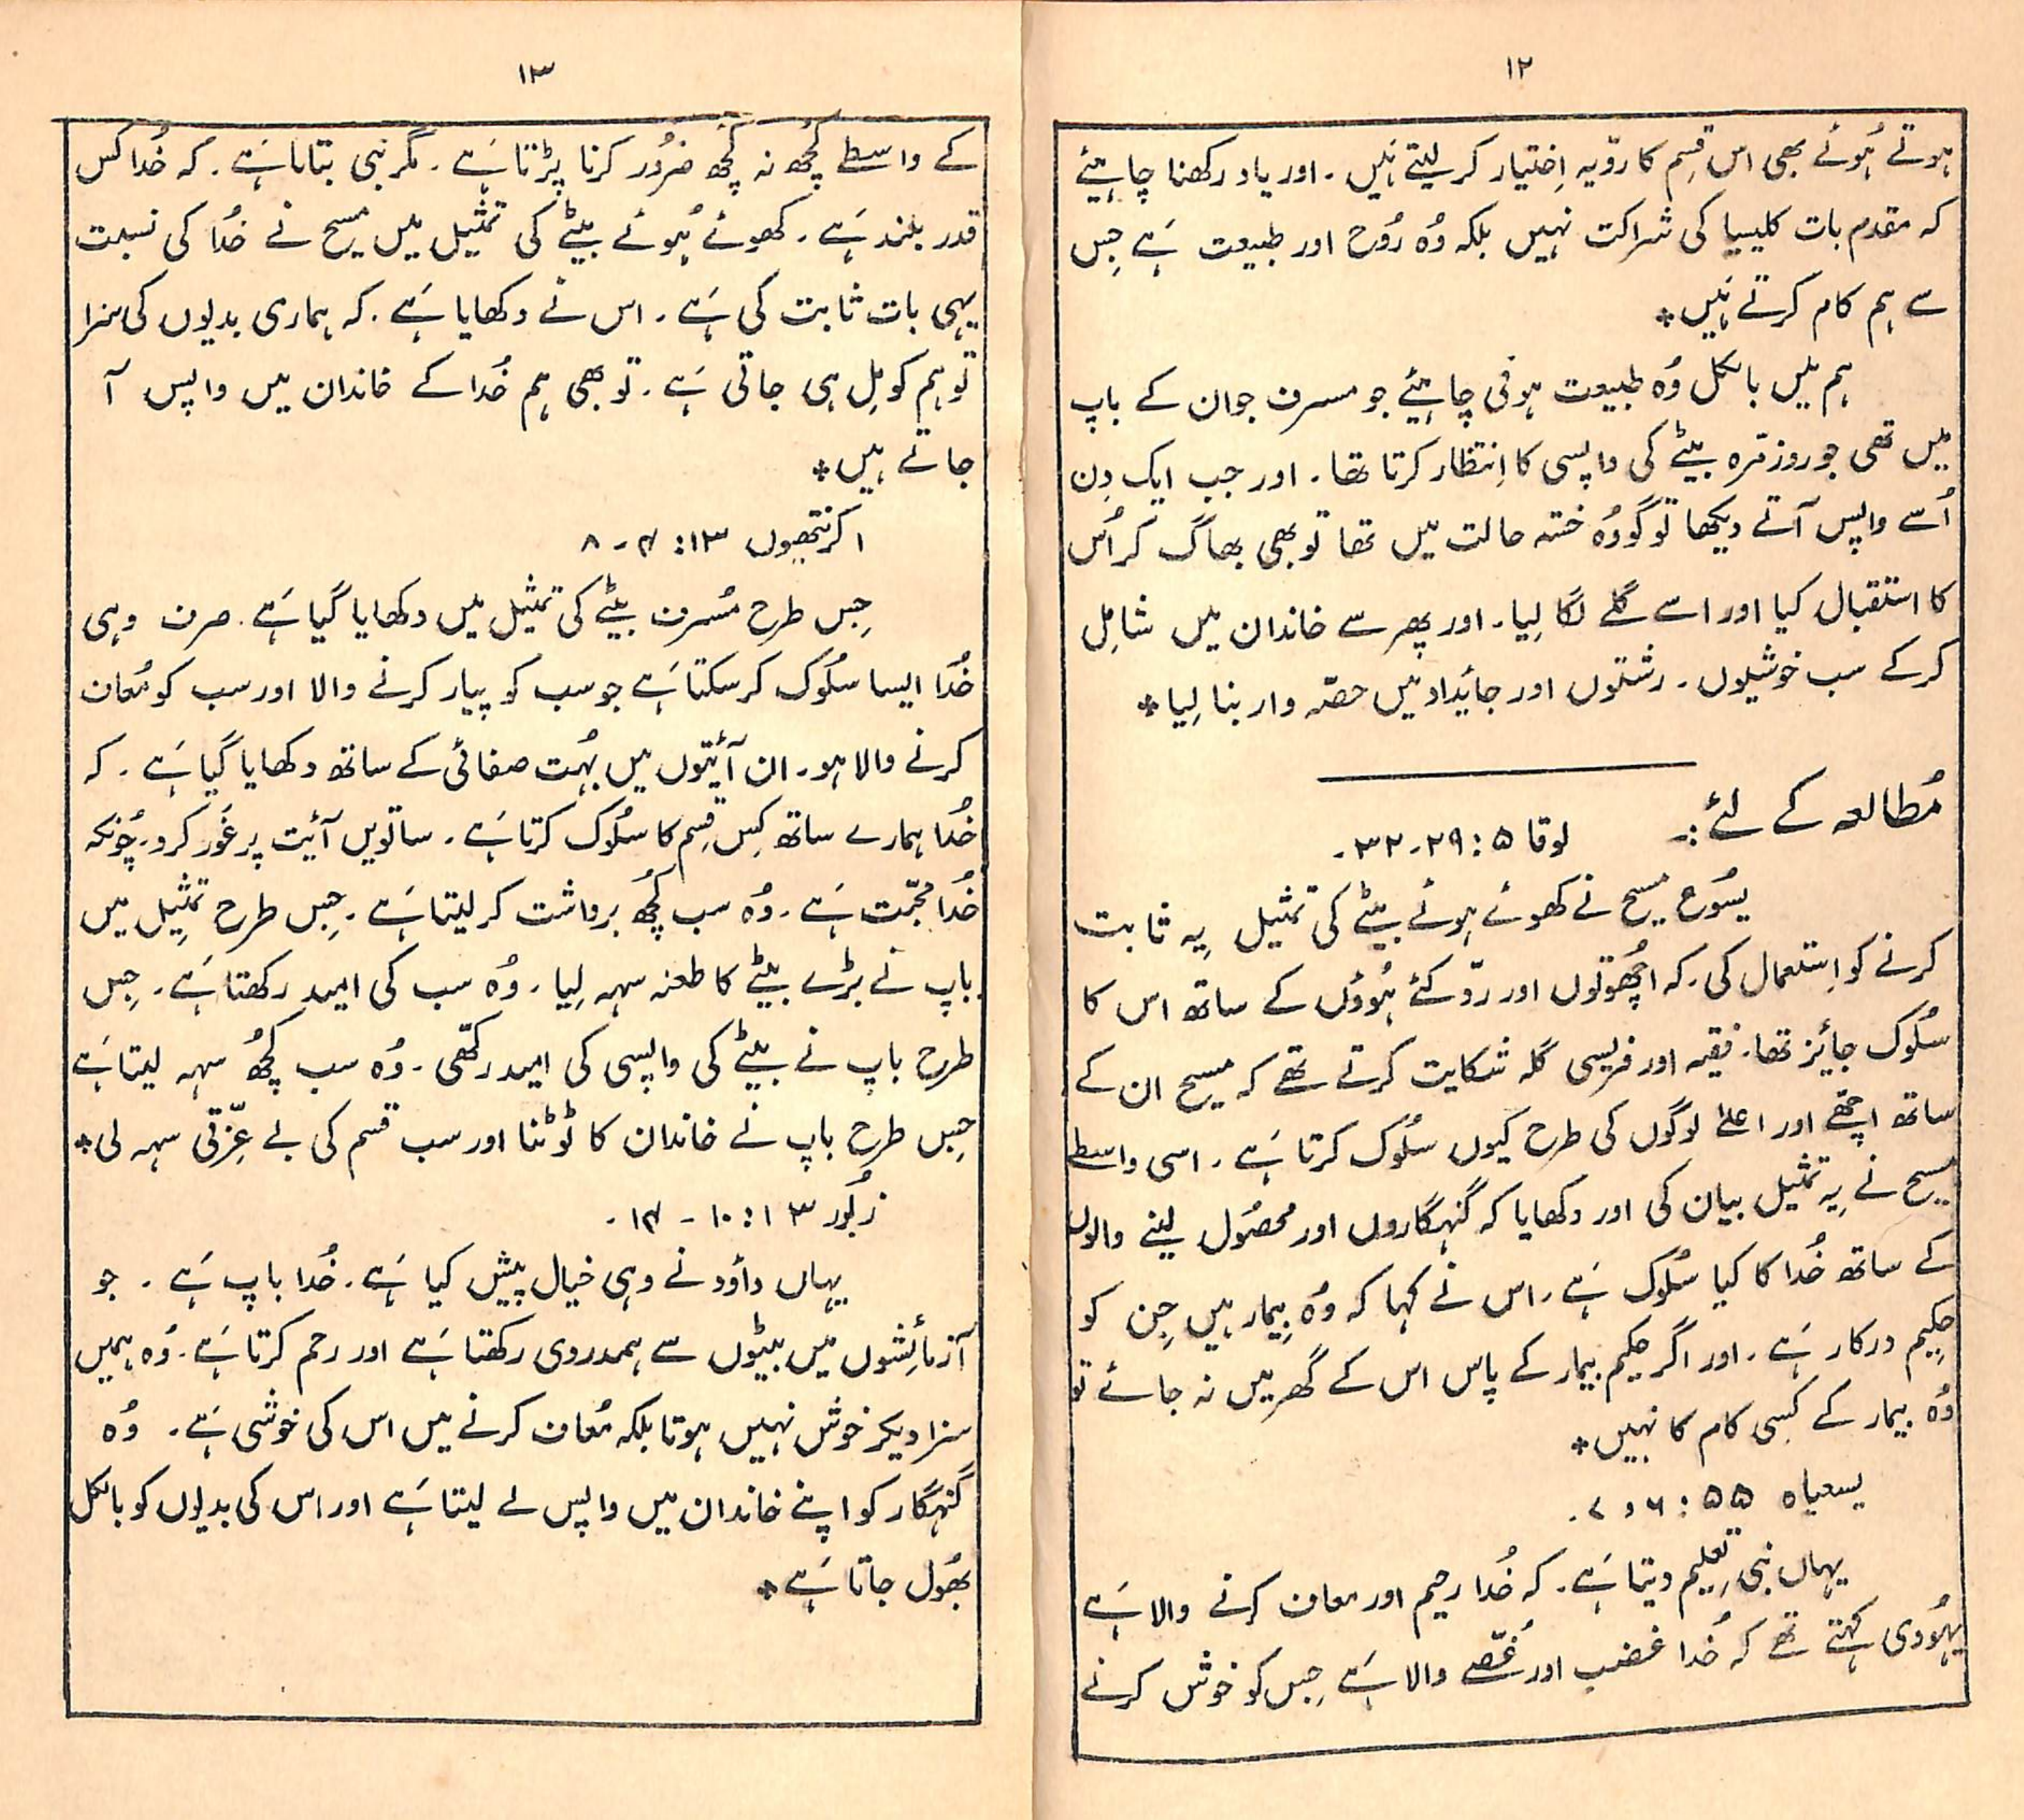 ١٢
ہوتے ہُوئے بھی اس قِسم کا رویّہ اِختیار کر لیتے ہَیں۔ اور یاد رکھنا چاہیئے
کہ مقدم بات کلیسیا کی شراکت نہیں بلکہ وُہ رُوح اور طبیعت ہَے جِس
سے ہم کام کرتے ہَیں٭
ہم میں بالکل وُہ طبیعت ہونی چاہیئے جو مسرف جوان کے باپ
میں تھی جو روزمّرہ بیٹے کی واپسی کا اِنتظار کرتا تھا۔ اور جب ایک دِن
اُسے واپس آتے دیکھا تو گو وُہ خستہ حالت میں تھا تو بھی بھاگ کر اُس
کا استقبال کیا اور اسے گلے لگا لِیا۔ اور پھر سے خاندان میں شامِل
کرکے سب خوشیوں۔ رشتوں اور جائیداد میں حصّہ دار بنا لِیا٭
مُطالعہ کے لئے:۔ لوقا ۵: ۲۹۔۳۲۔
یسُوع مسیح نے کھوئے ہوئے بیٹے کی تمثیل یِہ ثابت
کرنے کو اِستعمال کی۔ کہ اچُھوتوں اور ردّ کئے ہُوؤں کے ساتھ اس کا
سلُوک جائیز تھا۔ فقیہہ اور فریسی گلہ شکایت کرتے تھے کہ مسیح ان کے
ساتھ اچھّے اور اعلےٰ لوگوں کی طرح کیوں سلُوک کرتا ہَے۔ اسی واسطے
مسیح نے یِہ تمثیل بیان کی اور دکھایا کہ گنہگاروں اور محصُول لینے والوں
کے ساتھ خُدا کا کیا سلُوک ہَے۔ اس نے کہا کہ وُہ بِیمار ہیں جِن کو
حکِیم درکار ہَے۔ اور اگر حکیم بیمار کے پاس اس کے گھر میں نہ جائے تو
وُہ بیمار کے کسِی کام کا نہیں٭
یسعیاہ ۵۵: ۶ و ۷۔
یہاں نبی تعلِیم دیتا ہَے۔ کہ خُدا رحیم اور معاف کرنے والا ہَے
یہُودی کہتے تھے کہ خُدا غضب اور غُصّے والا ہَے جِس کو خوش کرنے
١٣
کے واسطے کُچھ نہ کُچھ ضرُور کرنا پڑتا ہَے۔ مگر نبی بتاتا ہَے۔ کہ خُدا کس
قدر بلند ہَے۔ کھوئے ہُوئے بیٹے کی تمثیل میں مسیح نے خُدا کی نسبت
یہی بات ثابت کی ہَے۔ اس نے دکھایا ہَے۔ کہ ہماری بدیوں کی سزا
تو ہم کو مِل ہی جاتی ہَے۔ تو بھی ہم خُدا کے خاندان میں واپس آ
جاتے ہیں٭
۱ کرنتھیوں ۱۳: ۴۔ ۸
جِس طرح مُسرف بیٹے کی تمثیل میں دکھایا گیا ہَے۔ صرف وہی
خُدا ایسا سلُوک کرسکتا ہَے جو سب کو پیار کرنے والا اور سب کو مُعاف
کرنے والا ہو۔ ان آئیتوں میں بہُت صفائی کے ساتھ دکھایا گیا ہَے۔ کہ
خُدا ہمارے ساتھ کِس قِسم کا سلُوک کرتا ہَے۔ ساتویں آئیت پر غَور کرو۔ چُونکہ
خُدا محبّت ہَے۔ وُہ سب کچُھ برداشت کر لیتا ہَے۔ جِس طرح تمثِیل میں
باپ نے بڑے بیٹے کا طعنہ سہہ لِیا۔ وُہ سب کی امید رکھتا ہَے۔ جِس
طرح باپ نے بیٹے کی واپسی کی امید رکھّی۔ وُہ سب کچُھ سہہ لیتا ہَے
جِس طرح باپ نے خاندان کا ٹوُٹنا اور سب قسم کی بے عِزّتی سہہ لی٭
زبُور ۱۳: ۱۰۔ ۱۴۔
یہاں داؤد نے وہی خیال پیش کیا ہَے۔ خُدا باپ ہَے۔ جو
آزمائِشوں میں بیٹوں سے ہمدردی رکھتا ہَے اور رحم کرتا ہَے۔ وُہ ہمیں
سزا دیکر خوش نہیں ہوتا بلکہ مُعاف کرنے میں اس کی خوشی ہَے۔ وُہ
گنہگار کو اپنے خاندان میں واپس لے لیتا ہَے اور اس کی بدیوں کو بالکل
بھُول جاتا ہَے٭